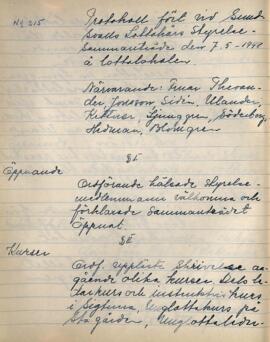 No 215
Protokoll fört vid Sund-
svalls Lottakårs Styrelse-
sammanträde den 7-5-1948
å lottalokalen
Närvarande: Fruar Theran-
der, Jonsson Sidén, Ulander,
Kittner, Ljunggren, Söderberg
Hedman, Blomgren
§ I
Öppnande
Ordförande hälsade styrelse-
medlemmarna välkomna och
förklarade sammanträdet
öppnat.
§ II
Kurser
Ordf. uppläste skrivelse an-
gående olika kurser,
i Sigtuna, Unglottakurs på
Stagården, Unglottaleder-